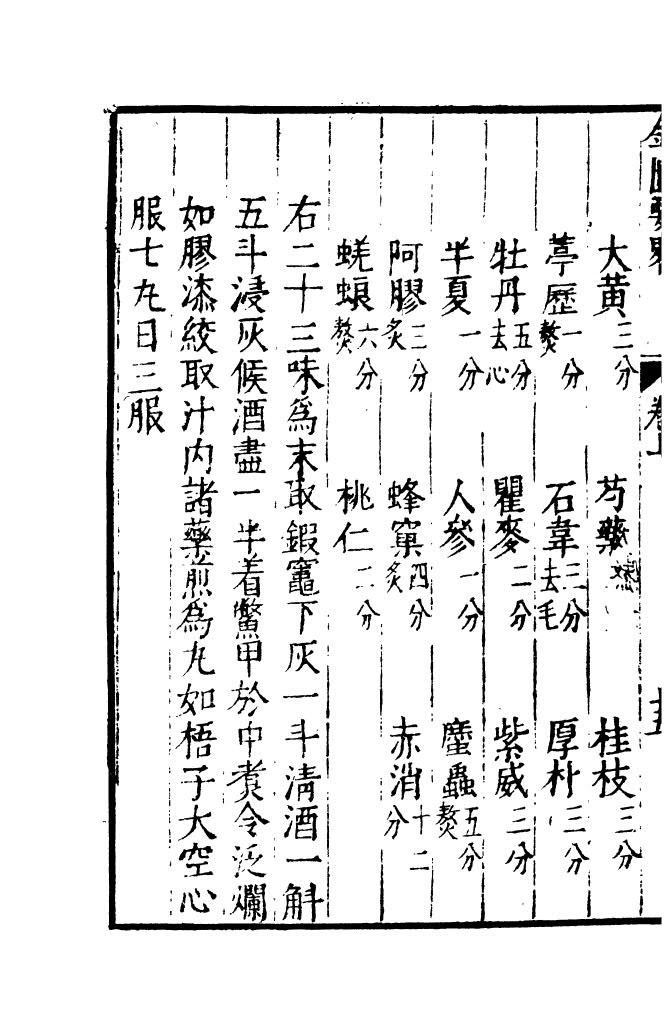 金匱要略 卷上 十五
大黃三分 芍藥 桂枝三分
葶歷一分熬 石韋三分去毛 厚朴三分
牡丹五分去心 瞿麥二分 紫威三分
半夏一分 人參一分 䗪蟲五分熬
阿膠三分炙 蜂窠四分炙 赤消十二分
蜣蜋六分熬 桃仁二分
右二十三味爲末取鍜竈下灰一斗清酒一斛
五斗浸灰候酒盡一半着鱉甲於中煑令泛爛
如膠漆絞取汁内諸藥煎爲丸如梧子大空心
服七丸日三服